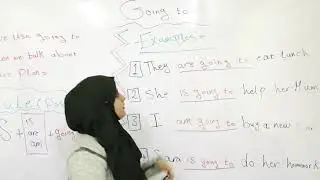 Going to
we use going to
n we talk about
e Plan
Rule
Examples
1 They are going to eat lunch
2 She is going to help her Mum
3 I am going to buy a new
S + is are am + going
Sara is going to do her homework